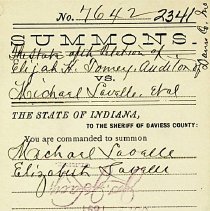 No. 7642 2341
SUMMONS
The State of the Relation of
Elijah H. Tomey, Auditor of
VS.
Michael Lavelle, et al
THE STATE OF INDIANA,
TO THE SHERIFF OF DAVIESS COUNTY:
You are commanded to summon
Michael Lavelle
Elizabeth Lavelle